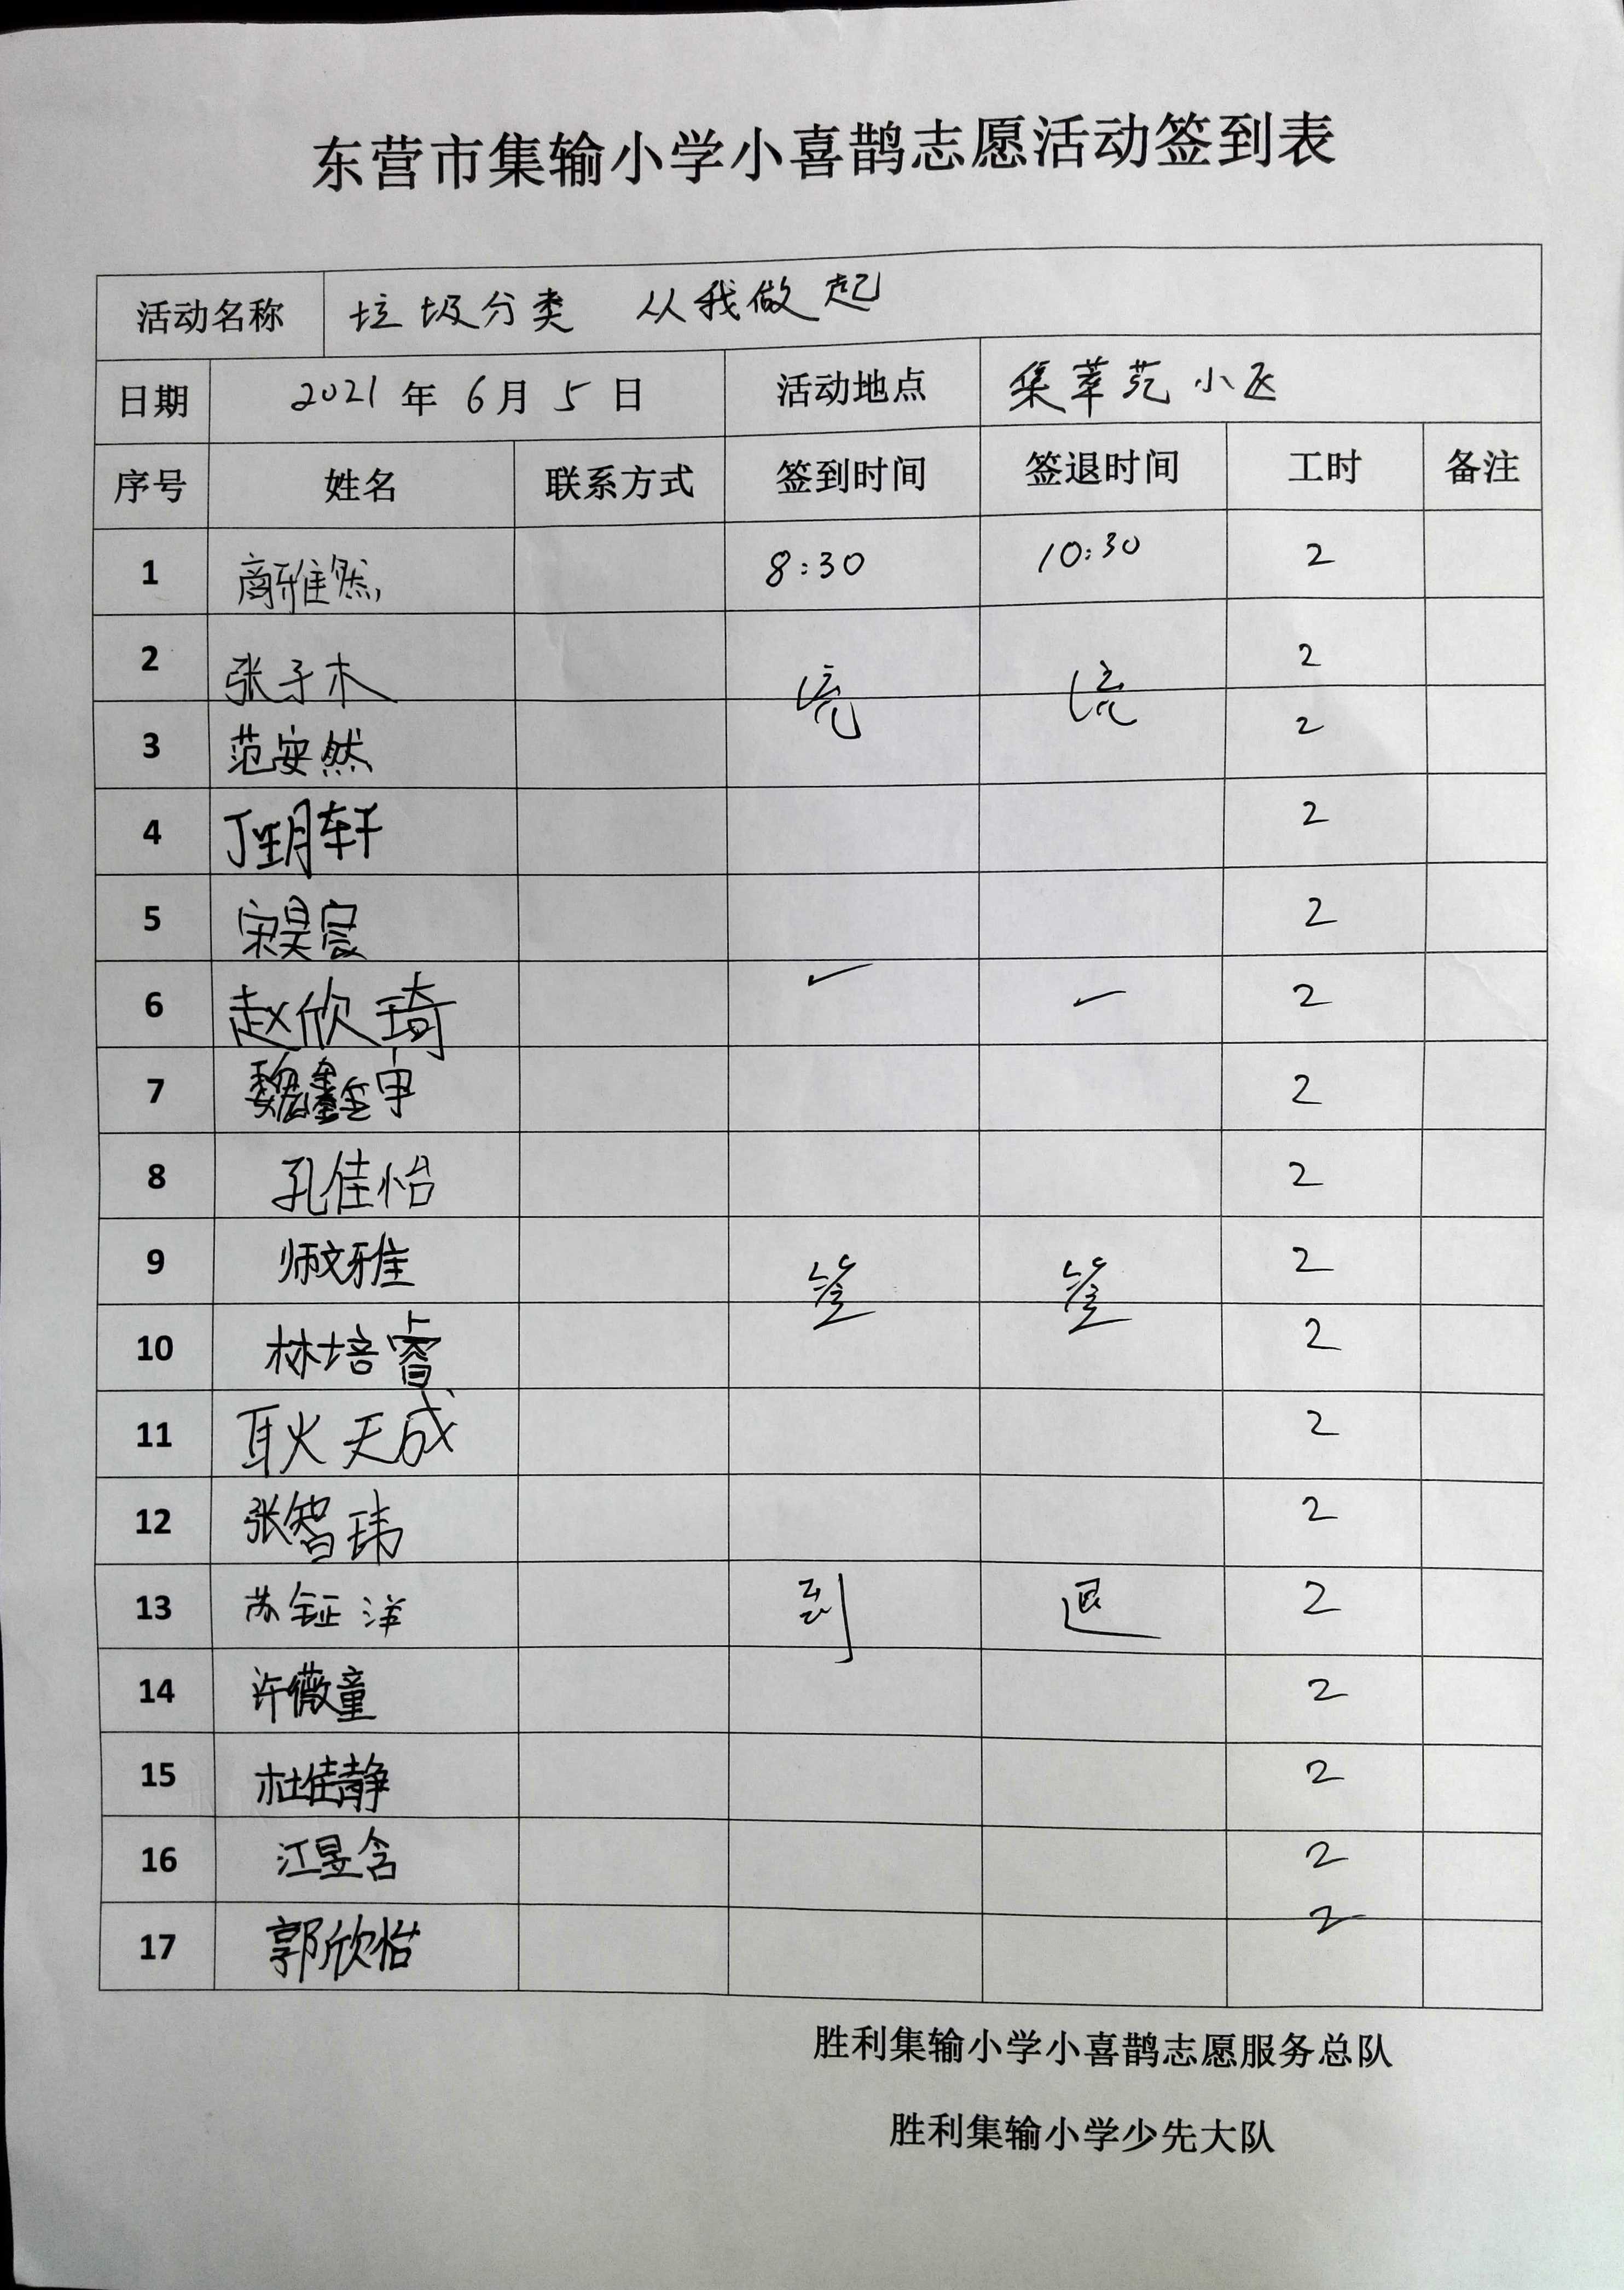 东营市集输小学小喜鹊志愿活动签到表
活动名称 垃圾分类 从我做起
日期 2021年6月5日 活动地点 集萃苑小区
序号 姓名 联系方式 签到时间 签退时间 工时 备注
1 商雅然 8:30 10:30 2
2 张子木 2
3 范安然 2
4 丁玥轩 2
5 宋昊宸 2
6 赵欣琦 2
7 魏鑫 2
8 孔佳怡 2
9 师文雅 签 签 2
10 林培睿 2
11 耿天成 2
12 张智玮 2
13 苏钲洋 到 退 2
14 许薇童 2
15 杜佳静 2
16 江昱含 2
17 郭欣怡 2
胜利集输小学小喜鹊志愿服务总队
胜利集输小学少先大队